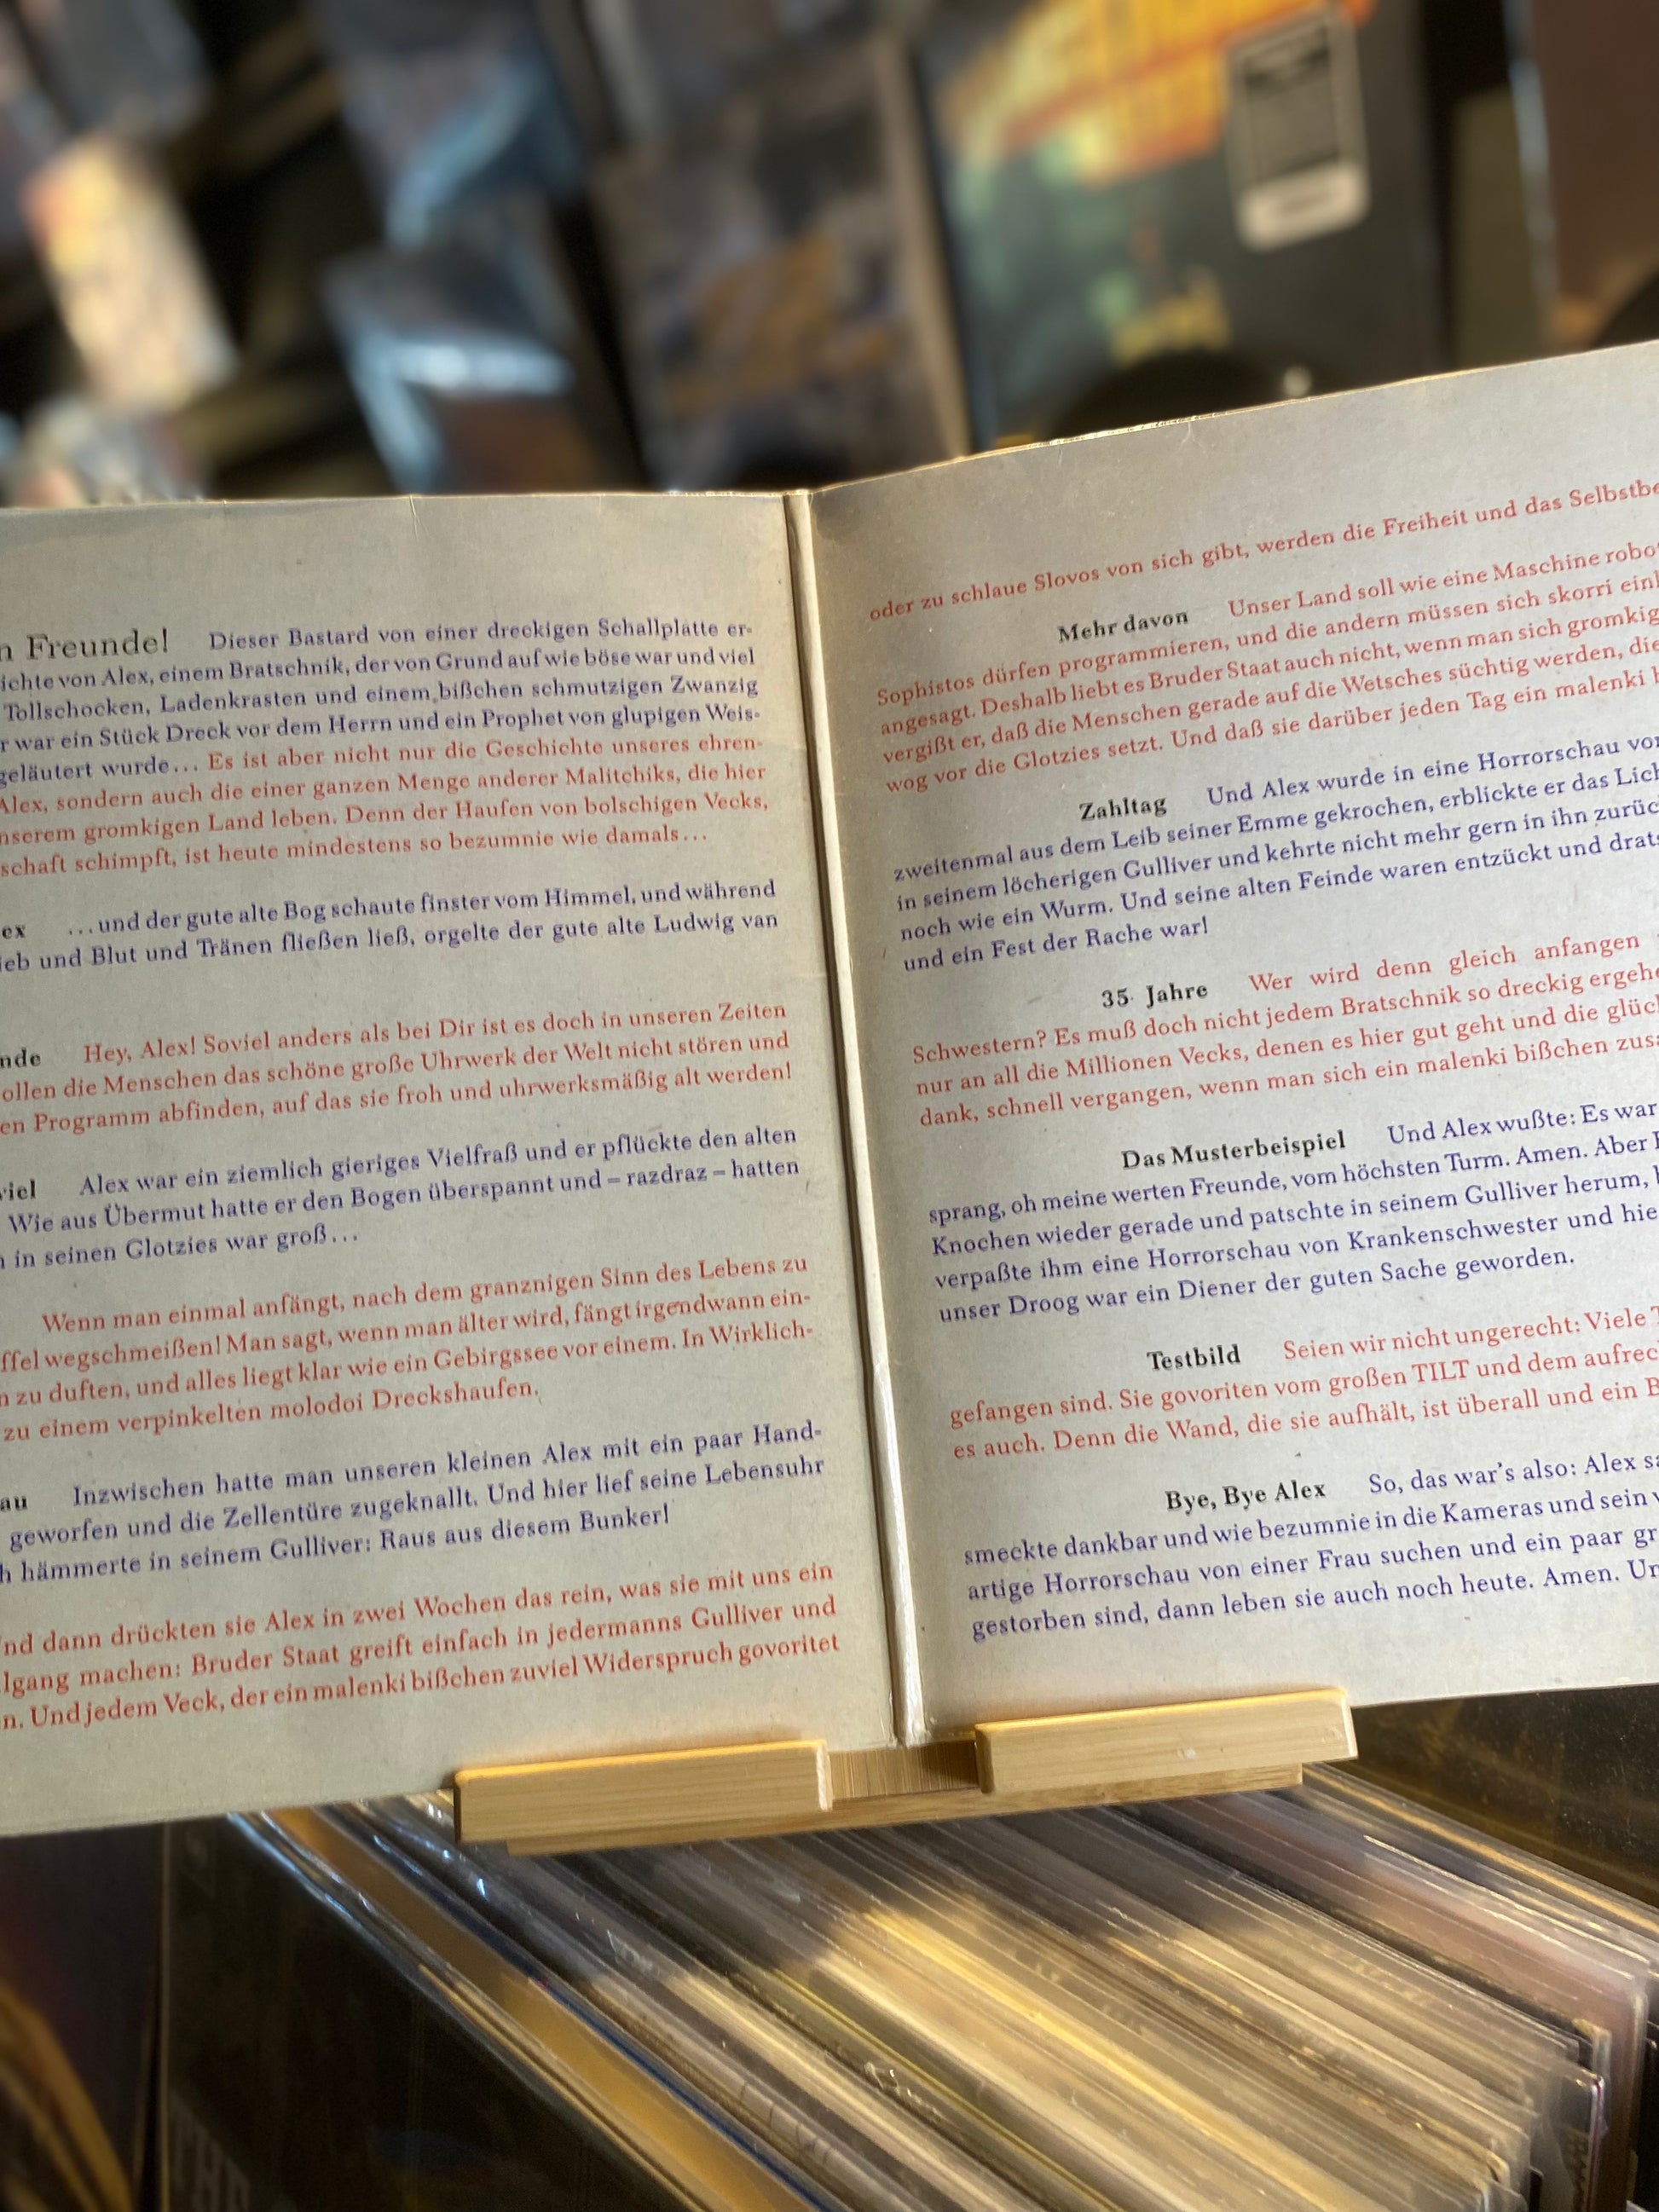 Freunde! Dieser Bastard von einer dreckigen Schallplatte er-
ichte von Alex, einem Bratschnik, der von Grund auf wie böse war und viel
Tollschocken, Ladenkrasten und einem bißchen schmutzigen Zwanzig
r war ein Stück Dreck vor dem Herrn und ein Prophet von glupigen Weis-
geläutert wurde... Es ist aber nicht nur die Geschichte unseres ehren-
Alex, sondern auch die einer ganzen Menge anderer Malitchiks, die hier
nserem gromkigen Land leben. Denn der Haufen von bolschigen Vecks,
schaft schimpft, ist heute mindestens so bezumnie wie damals...
ex ...und der gute alte Bog schaute finster vom Himmel, und während
ieb und Blut und Tränen fließen ließ, orgelte der gute alte Ludwig van
nde Hey, Alex! Soviel anders als bei Dir ist es doch in unseren Zeiten
ollen die Menschen das schöne große Uhrwerk der Welt nicht stören und
en Programm abfinden, auf das sie froh und uhrwerksmäßig alt werden!
viel Alex war ein ziemlich gieriges Vielfraß und er pflückte den alten
Wie aus Übermut hatte er den Bogen überspannt und – razdraz – hatten
n in seinen Glotzies war groß...
Wenn man einmal anfängt, nach dem granznigen Sinn des Lebens zu
ffel wegschmeißen! Man sagt, wenn man älter wird, fängt irgendwann ein-
n zu duften, und alles liegt klar wie ein Gebirgssee vor einem. In Wirklich-
zu einem verpinkelten molodoi Dreckshaufen.
au Inzwischen hatte man unseren kleinen Alex mit ein paar Hand-
geworfen und die Zellentüre zugeknallt. Und hier lief seine Lebensuhr
h hämmerte in seinem Gulliver: Raus aus diesem Bunker!
Und dann drückten sie Alex in zwei Wochen das rein, was sie mit uns ein
lgang machen: Bruder Staat greift einfach in jedermanns Gulliver und
n. Und jedem Veck, der ein malenki bißchen zuviel Widerspruch govoritet
oder zu schlaue Slovos von sich gibt, werden die Freiheit und das Selbstbe
Mehr davon Unser Land soll wie eine Maschine robo
Sophistos dürfen programmieren, und die andern müssen sich skorri ein
angesagt. Deshalb liebt es Bruder Staat auch nicht, wenn man sich gromkig
vergißt er, daß die Menschen gerade auf die Wetsches süchtig werden, die
wog vor die Glotzies setzt. Und daß sie darüber jeden Tag ein malenki b
Zahltag Und Alex wurde in eine Horrorschau vo
zweitenmal aus dem Leib seiner Emme gekrochen, erblickte er das Lich
in seinem löcherigen Gulliver und kehrte nicht mehr gern in ihn zurüc
noch wie ein Wurm. Und seine alten Feinde waren entzückt und drats
und ein Fest der Rache war!
35 Jahre Wer wird denn gleich anfangen
Schwestern? Es muß doch nicht jedem Bratschnik so dreckig ergehe
nur an all die Millionen Vecks, denen es hier gut geht und die glüc
dank, schnell vergangen, wenn man sich ein malenki bißchen zusa
Das Musterbeispiel Und Alex wußte: Es war
sprang, oh meine werten Freunde, vom höchsten Turm. Amen. Aber
Knochen wieder gerade und patschte in seinem Gulliver herum,
verpaßte ihm eine Horrorschau von Krankenschwester und hie
unser Droog war ein Diener der guten Sache geworden.
Testbild Seien wir nicht ungerecht: Viele
gefangen sind. Sie govoriten vom großen TILT und dem aufrec
es auch. Denn die Wand, die sie aufhält, ist überall und ein B
Bye, Bye Alex So, das war's also: Alex sa
smeckte dankbar und wie bezumnie in die Kameras und sein
artige Horrorschau von einer Frau suchen und ein paar gr
gestorben sind, dann leben sie auch noch heute. Amen. Un